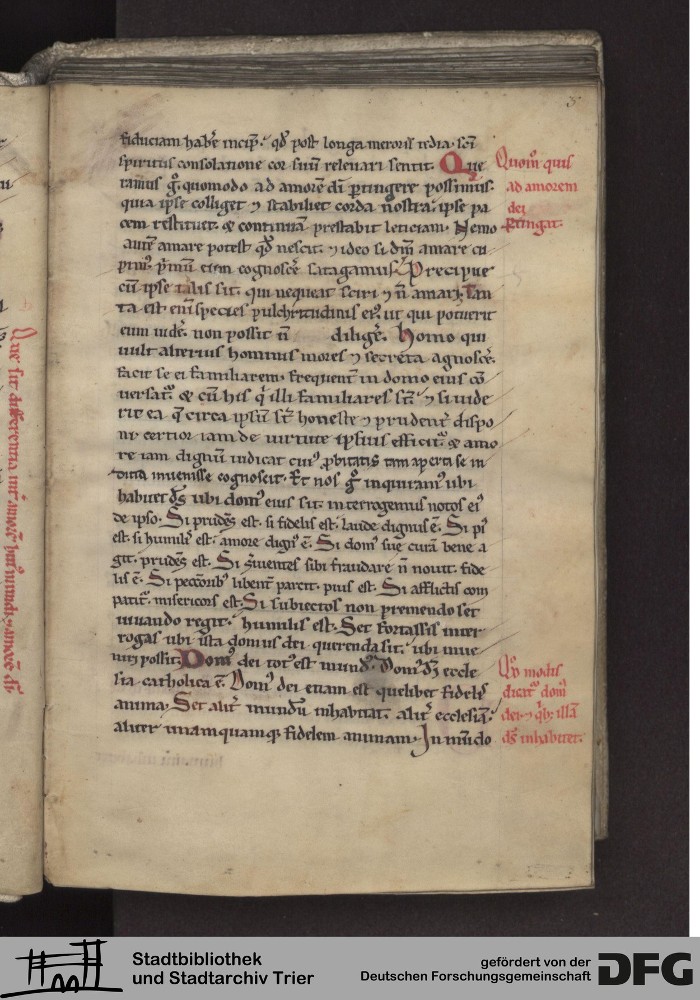 fiduciam hab͛e incip̄. qđ post longa meroris tedia. sc̄i
spiritus consolatione cor suū releuari sentit. Que
ramus g̊. quomodo ad amorē di ꝑtingere possimus.
quia ipse colliget ⁊ stabiliet corda nostra. ipse pa
cem restituet. & continuā prestabit leticiam. Nemo
autē amare potest qđ nescit. ⁊ ideo si dm̄ amare cu
pim᷒. p̄mū eum cognosc̄e satagamus. Precipue
cū ipse talis sit. qui nequeat sciri ⁊ n̄ amari. Tan
ta est eni species pulchritudinis ei᷒. ut qui potuerit
eum uid͛e. non possit n̄ diliḡe. Homo qui
uult alterius hominis mores ⁊ secreta agnosc̄e.
facit se ei familiarem. frequent̄ in domo eius cō
uersat᷑. & cū his q̄ illi familiares st̄. ⁊ si uide
rit ea q̄ circa ipsū st̄ honeste ⁊ prudent͛ dispo
ni. certior iam de uirtute ipsius effici᷑. & amo
re iam dignū iudicat cui᷒ ꝓbitatis tam aperta se in
ditia inuenisse cognoscit. Et nos g̊ inquiram᷒ ubi
habitet ds̄. ubi dom᷒ eius sit. interrogemus notos ei᷒
de ipso. Si prudēs est. si fidelis est. laude dignus ē. Si pi᷒
est. si humil᷒ est. amore dign᷒ ē. Si dom᷒ sue curā bene a
git. prudēs est. Si s̄uientes sibi fraudare n̄ nouit. fide
lis ē. Si peccātib᷒ libent͛ parcit. pius est. Si afflictis com
patit᷑. misericors est. Si subiectos non premendo set
iuuando regit. humilis est. Set fortassis inter
rogas ubi ista domus dei querenda sit. ubi inue
niri possit. Dom᷒ dei tot᷒ est mund᷒. Dom᷒ di eccle
sia catholica ē. Dom᷒ dei etiam est quelibet fidel᷒
anima. Set alit͛ mundū inhabitat. alit͛ ecclesiā.
aliter unamquamque fidelem animam. In mūdo
Quom̊ quis
ad amorem
dei
ꝑtingat.
Qb᷒ modis
dicat᷑ dom᷒
dei. ⁊ qb᷒ illā
ds̄ inhabitet.
Que sit differentia int͛ amorē hui᷒ mundi. ⁊ amorē di.
Stadtbibliothek
und Stadtarchiv Trier
gefördert von der
Deutschen Forschungsgemeinschaft
DFG